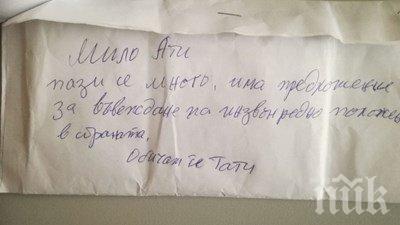 Мило Ати
пази се много, има предложение
за въвеждане на извънредно положе
в страната.
Обичам те Тати
пик